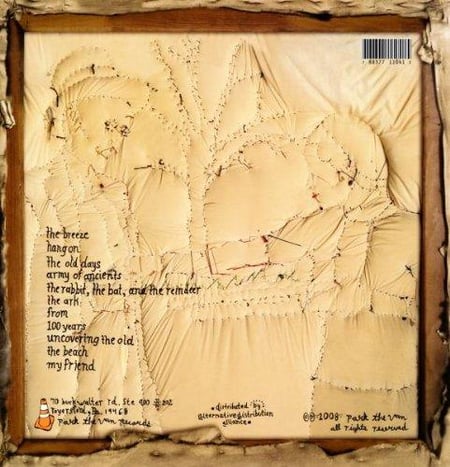 7 88377 11041 3
the breeze
hang on
the old days
army of ancients
the rabbit, the bat, and the reindeer
the ark
from
100 years
uncovering the old
the beach
my friend
70 buckwalter rd. Ste 900
Royersford, Pa. 19468
Park the Van Records
distributed by:
alternative distribution
alliance
©℗ 2008 Park the Van
all rights reserved